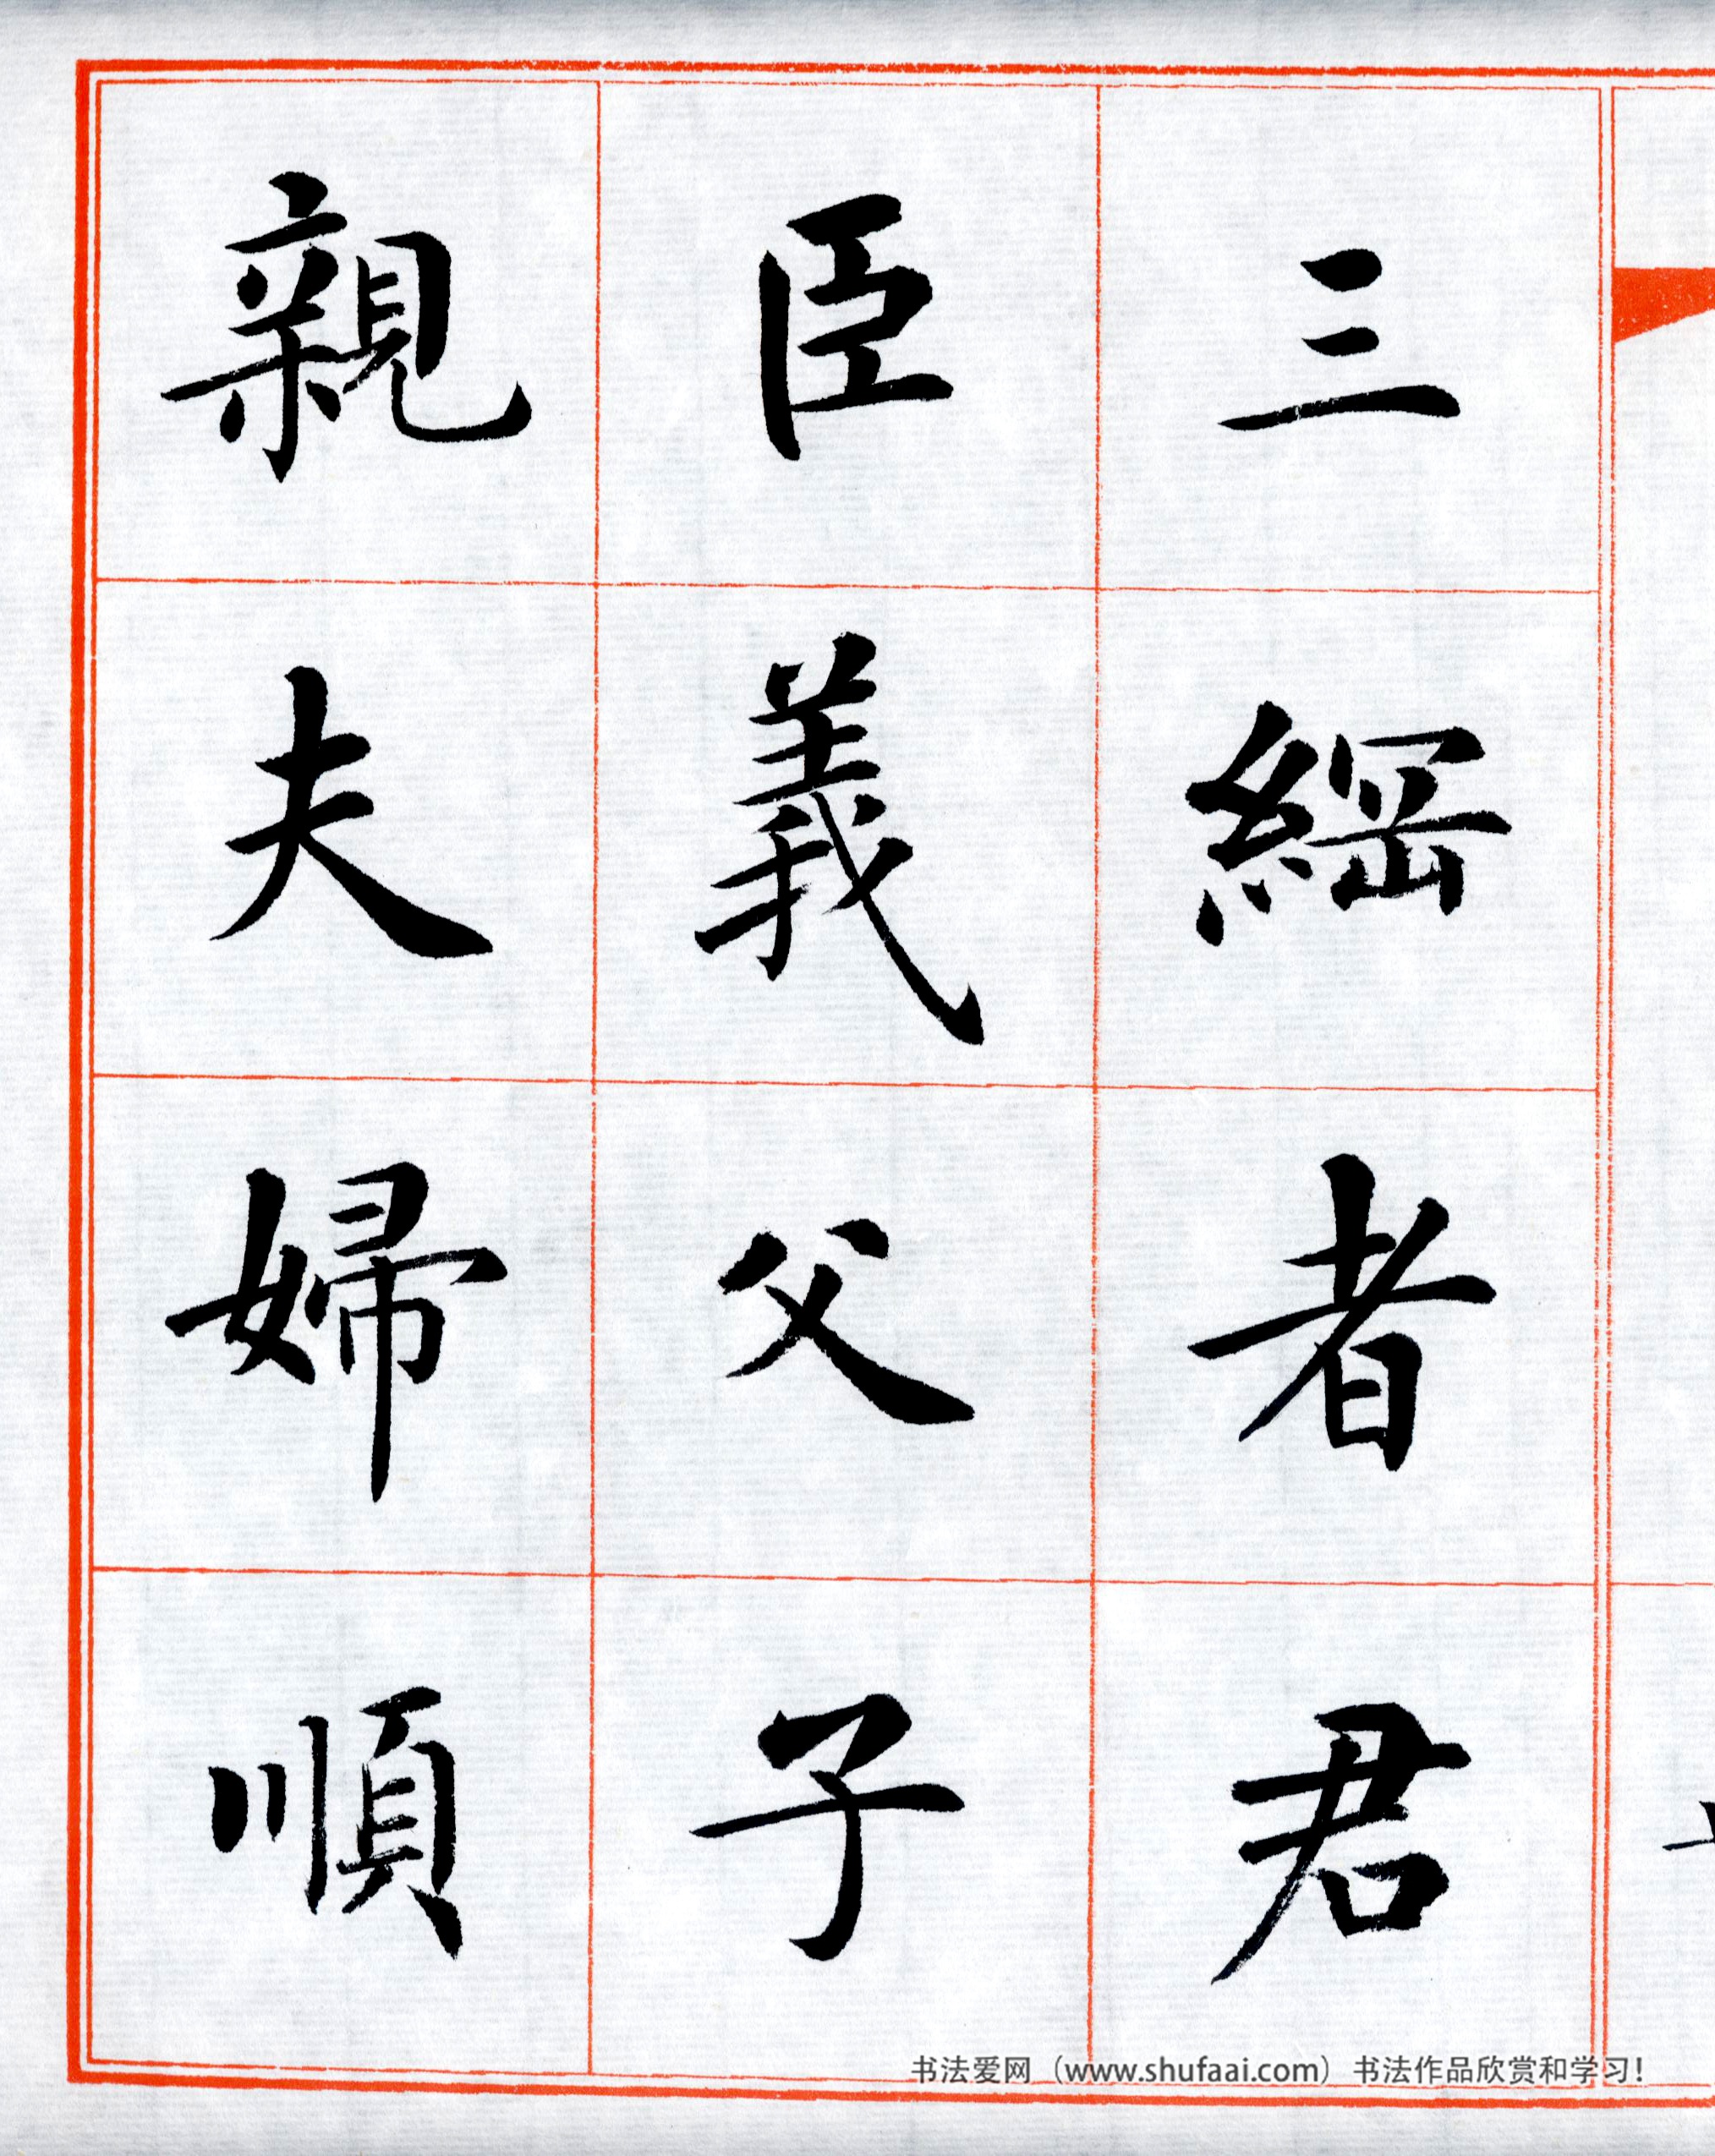 三綱者君
臣義父子
親夫婦順
书法爱网（www.shufaai.com）书法作品欣赏和学习！